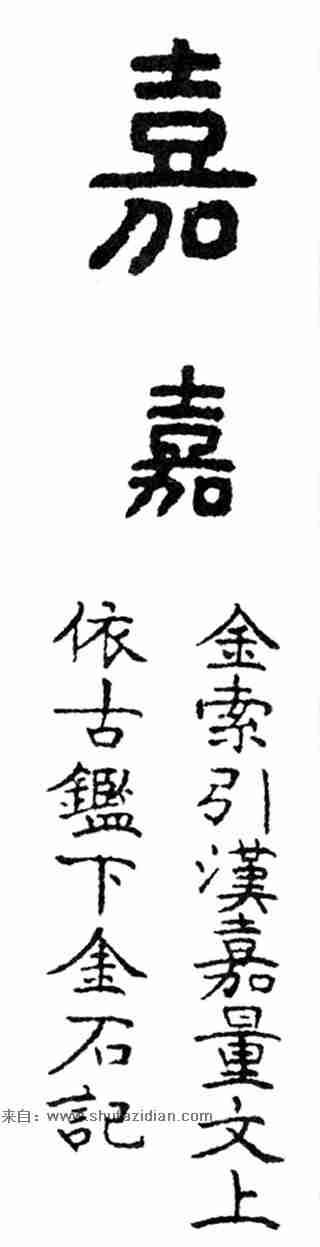 嘉
嘉
金索引漢嘉量文上
依古鑑下金石記
来自：www.shufazidian.com